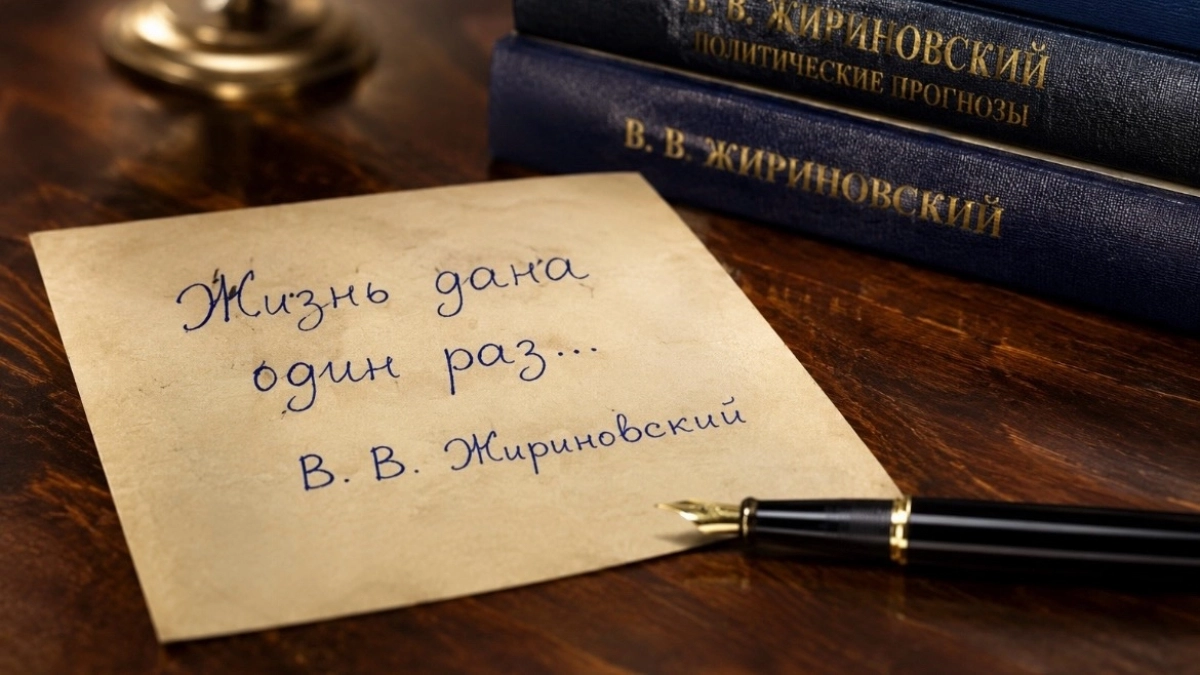 В. В. ЖИРИНОВСКИЙ
ПОЛИТИЧЕСКИЕ ПРОГНОЗЫ
В. В. ЖИРИНОВСКИЙ
Жизнь дана
один раз...
В. В. Жириновский